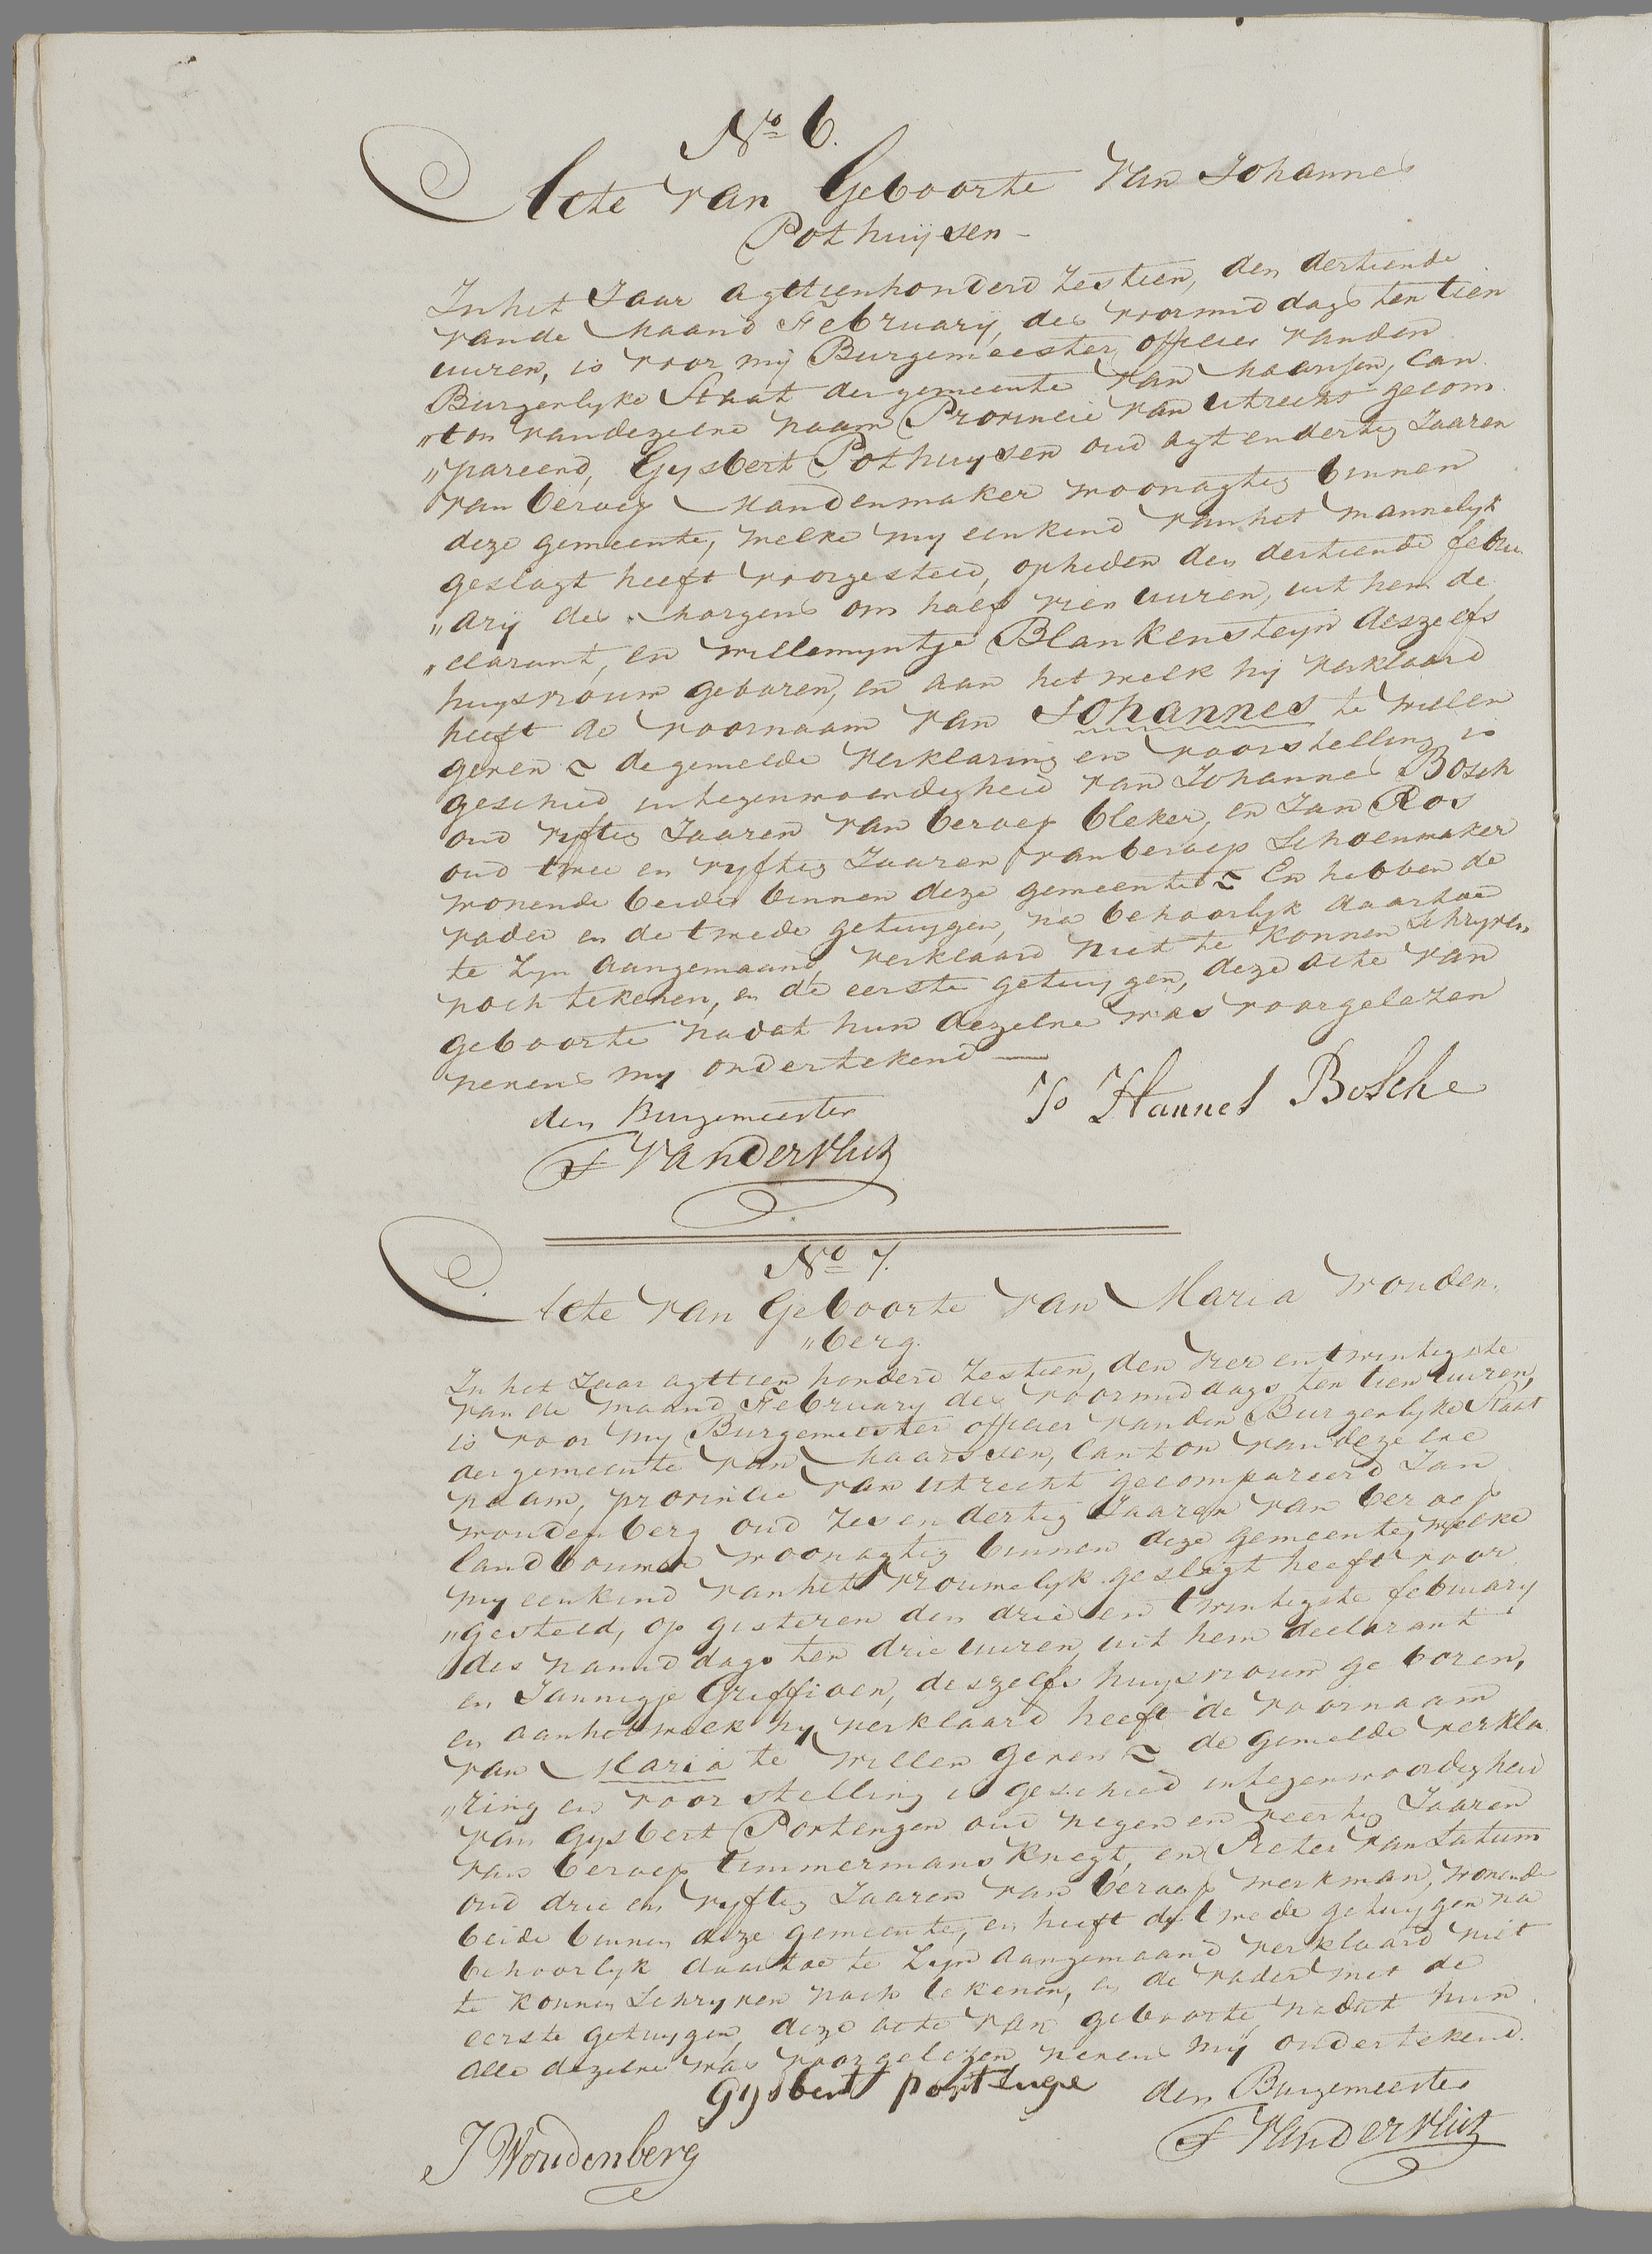 No 6.
Acte van Geboorte van Johannes
Pothuijsen -
In het Jaar agttienhonderd Zestien, den dertiende
van de Maand February, des voormiddags ten tien
uuren, is voor mij Burgemeester officier van den
Burgerlyke Staat der gemeente van Maarssen, Can
"ton van dezelve naam Provincie van Utrecht gecom
"pareerd, Gysbert Pothuysen oud agt en dertig Jaaren
van beroep Mandenmaker woonagtig binnen
deze gemeente, welke my een kind van het mannelyk
geslagt heeft voorgesteld, op heden den dertiende febru
"arij des morgens om half vier uuren, uit hem de
"clarant, en Willemyntje Blankensteyn deszelfs
huysvrouw geboren, en aan het welk hij verklaard
heeft de voornaam van Johannes te willen
geven ~ de gemelde verklaring en voorstelling is
geschied in tegenwoordigheid van Johannes Bosch
oud vyftig Jaaren van beroep bleker, en Jan Ros
oud twee en vyftig Jaaren van beroep Schoenmaker
wonende beide binnen deze gemeente ~ En hebben de
vader en de twede getuygen, na behoorlyk daartoe
te zyn aangemaand, verklaard niet te konnen Schryven
noch tekenen, en de eerste getuygen, deze acte van
geboorte nadat hun dezelve was voorgelezen
nevens my ondertekend —
den Burgemeester
Jo Hannes Bosche
F Van der Vliet
No 7.
Acte van Geboorte van Maria Wouden
"berg.
In het Jaar agttien honderd Zestien, den vier en twintigste
van de maand February des voormiddags ten tien uuren,
is voor my Burgemeester officier van den Burgerlyke Staat
der gemeente van Maarssen, Canton van dezelve
naam, provincie van Utrecht gecompareerd Jan
Woudenberg oud Zes en dertig Jaaren van beroep
landbouwer woonagtig binnen deze gemeente, welke
my een kind van het vrouwelyk geslagt heeft voor
"gesteld, op gisteren den drie en twintigste february
des namiddags ten drie uuren, uit hem declarant
en Jannigje Griffioen, deszelfs huysvrouw geboren,
en aan het welk hy verklaard heeft de voornaam
van Maria te willen geven ~ de gemelde verkla
"ring en voorstelling is geschied in tegenwoordigheid
van Gysbert Portengen oud negen en veertig Jaaren
van beroep timmermans Knegt, en Pieter van Satum
oud drie en vyftig Jaaren van beroep werkman, wonende
beide binnen deze gemeente, en heeft de twede getuygen na
behoorlyk daartoe te zyn aangemaand verklaard niet
te konnen Schryven noch tekenen, en de vader met de
eerste getuygen, deze acte van geboorte, nadat hun
alle dezelve was voorgelezen nevens mij ondertekend.
Gysbert portenge
den Burgemeester
J Woudenberg
F Van der Vliet